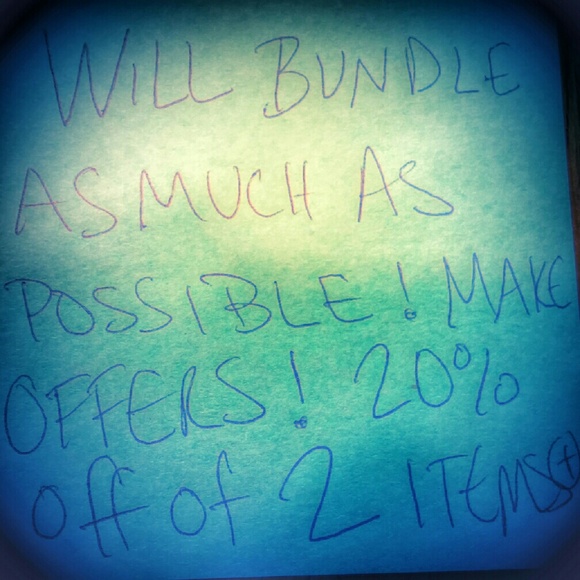 WILL BUNDLE
AS MUCH AS
POSSIBLE! MAKE
OFFERS! 20%
off of 2 ITEMS(+)